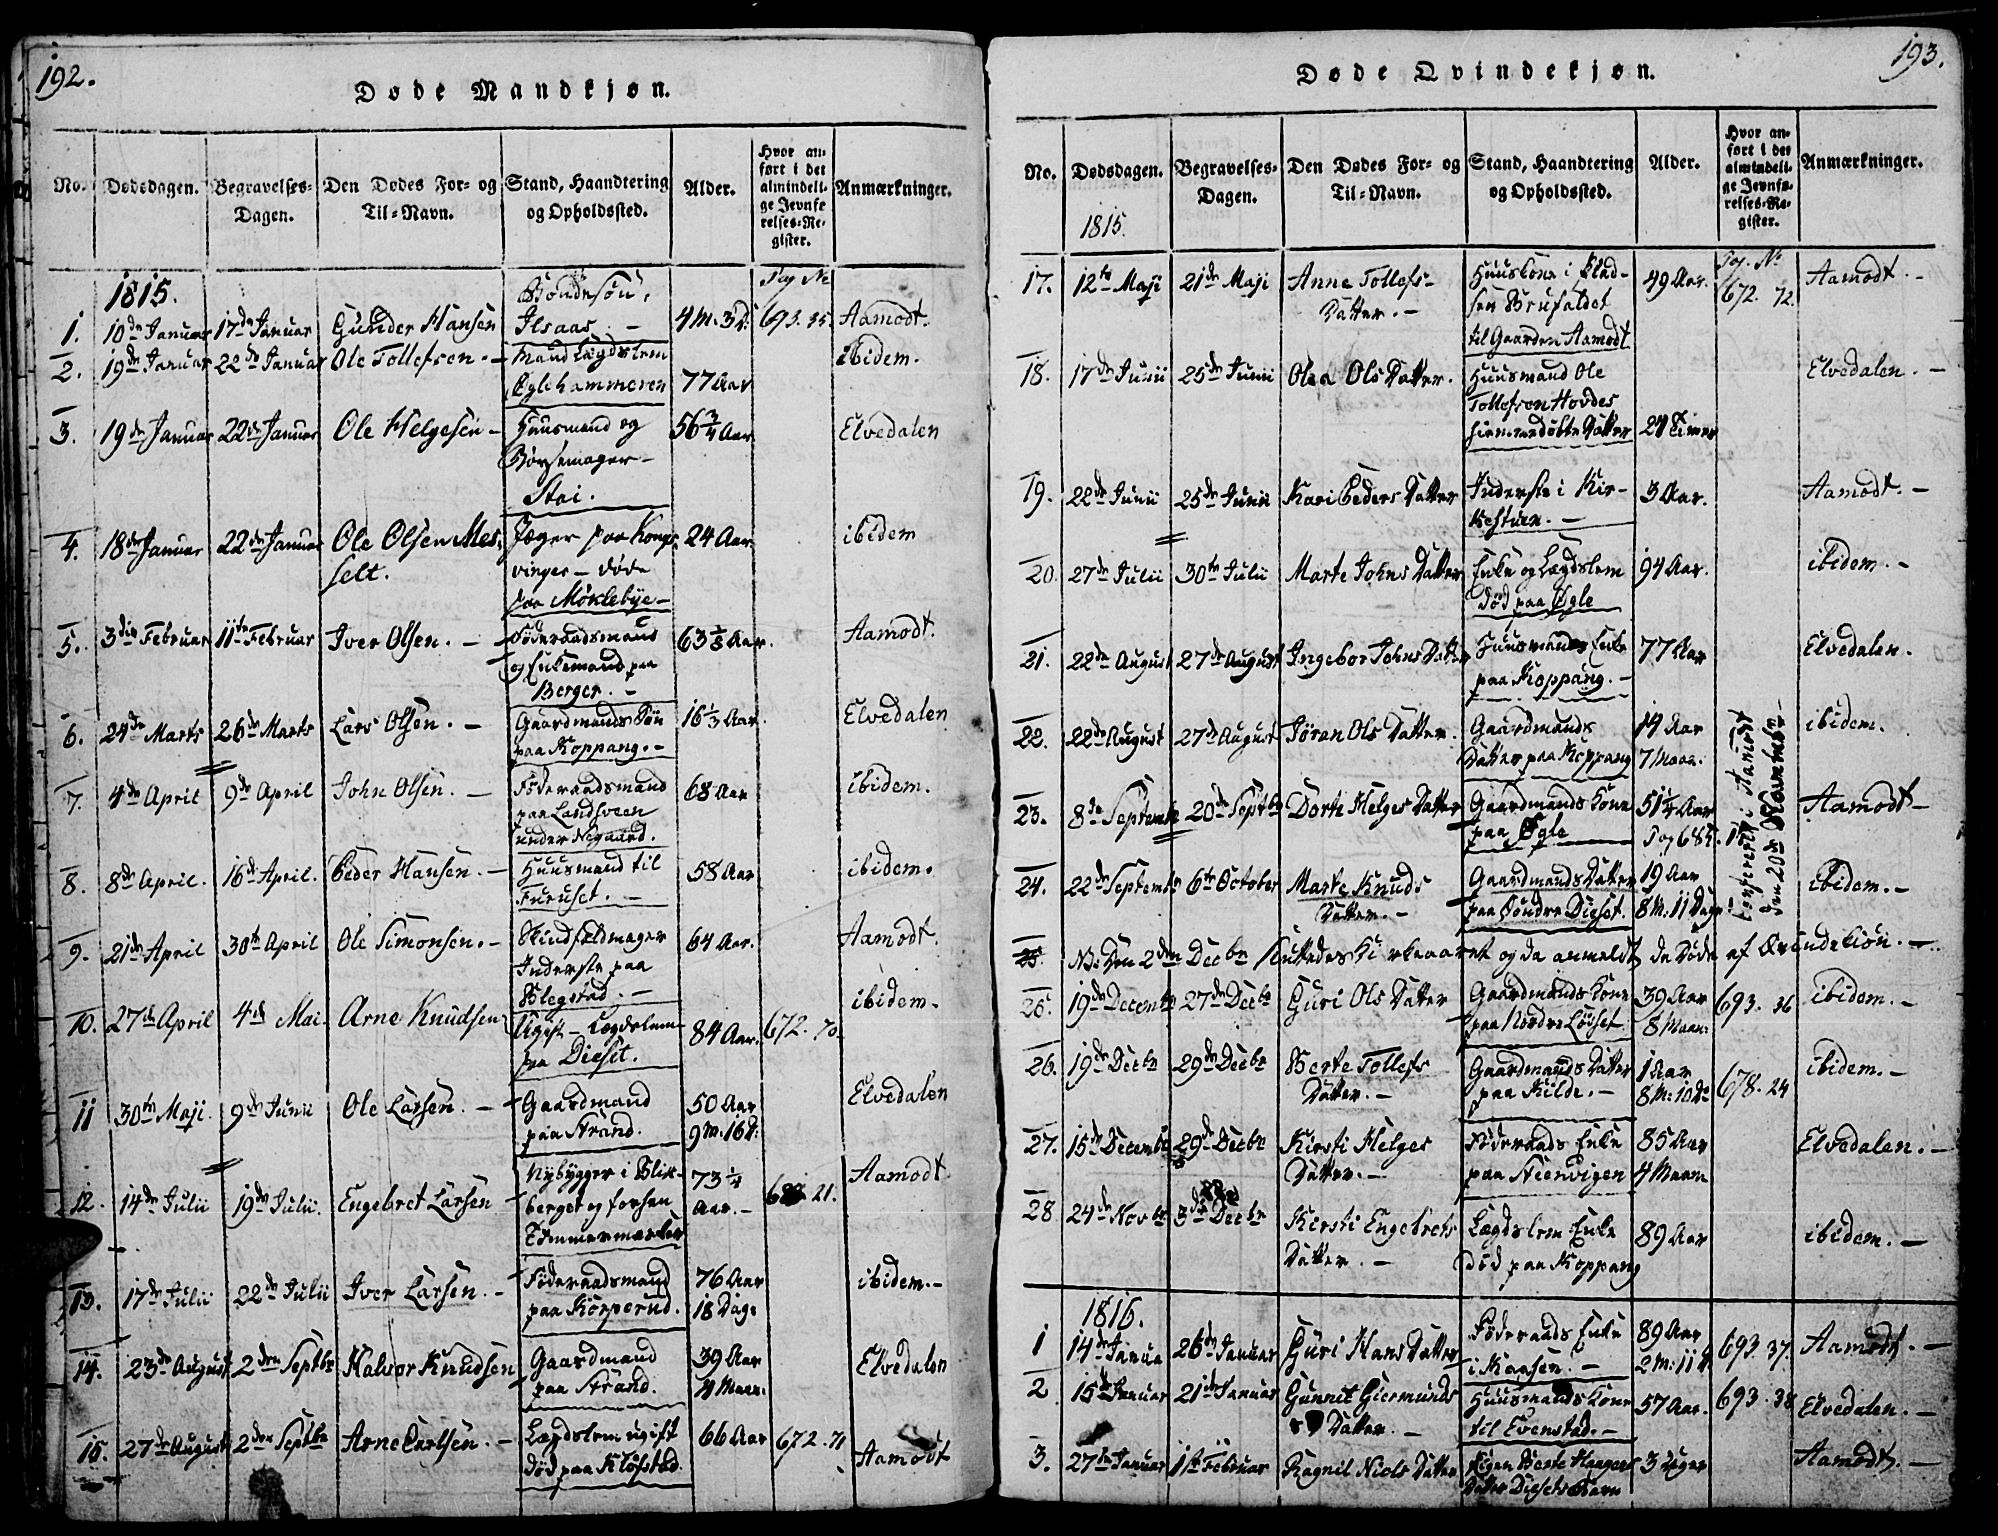 192.
Døde Mandkjøn.
No. Dødsdagen. Begravelses-Dagen. Den Dødes For- og Til-Navn. Stand, Haandtering og Opholdssted. Alder. Hvor anført i det almindelige Jevnførelses-Register. Anmærkninger.
1815. Pag No
1. 10de Januar 17de Januar Gunder Hansen Bondesøn, Ilsaas. – 4 M. 3 D. 693. 35. Aamodt.
2. 19de Januar 22de Januar Ole Tollefsen. – Mand Lægdslem Øglehammeren 77 Aar ibidem.
3. 19de Januar 22de Januar Ole Helgesen – Huusmand og Børsemager – Stai. 56 3/4 Aar Elvedalen
4. 18de Januar 22de Januar Ole Olsen Messelt. Jæger paa Kongsvinger – døde paa Møklebye – 24 Aar ibidem
5. 3die Februar 11te Februar Iver Olsen. – Føderaadsmand og Enkemand paa Berger. – 63 Aar. Aamodt.
6. 24de Marts 26de Marts Lars Olsen. – Gaardmands Søn paa Koppang. – 16 1/3 Aar Elvedalen
7. 4de April 9de April John Olsen. – Føderaadsmand paa Landsveen under Negaard. 68 Aar ibidem.
8. 8de April. 16de April. Peder Hansen. – Huusmand til Furuset. – 58 Aar ibidem.
9. 21de April 30te April Ole Simonsen. – Skindfeldmager Inderste paa Blegstad. – 64 Aar. Aamodt.
10. 27de April 4de Mai Arne Knudsen Ugift – Lægdslem paa Dieset. 84 Aar. 672. 70. ibidem.
11 30te Maji. 9de Junii Ole Larsen. – Gaardmand paa Strand. 50 Aar 9 M. 16 D. Elvedalen
12. 14de Julii 19de Julii. Engebret Larsen Nybygger i Blikberget og forhen Tømmermærker 73 1/4 Aar. – 21. Aamodt.
13. 17de Julii 22de Julii Iver Larsen. – Føderaadsmand paa Kørperud. 76 Aar 18 Dage ibidem. –
14. 23de August 2den Septbr Halvor Knudsen Gaardmand paa Strand. 39 Aar Maan. Elvedalen
15. 27de August 2den Septbr Arne Carlsen. – Lægdslem ugift død paa Kløfstad. 66 Aar 672. 71 Aamodt
193.
Døde Qvindekjøn.
No. Dødsdagen. Begravelses-Dagen. Den Dødes For- og Til-Navn. Stand, Haandtering og Opholdssted. Alder. Hvor anført i det almindelige Jevnførelses-Register. Anmærkninger.
1815.
Pag. No
17. 12te Maji 21de Maji Anne Tollefs Datter. – Huuskone i Pladsen Brufaldet til Gaarden Aamodt 49 Aar. 672. 72. Aamodt. –
18. 17de Junii 25de Junii Olea Ols Datter. Huusmand Ole Tollefsen Hovdes hiemmedøbte Datter 24 Timer Elvedalen. –
19. 22de Junii 25de Junii Kari Peders Datter Inderste i Kirkestuen. – 3 Aar. Aamodt. –
20. 27de Julii 30te Julii Marte Johns Datter Enke og Lægdslem død paa Øgle 94 Aar. ibidem. –
21. 22de August 27de August Ingebor Johns Datter Huusmands Enke paa Koppang. – 77 Aar Elvedalen.
22. 22de August 27de August Jøran Ols Datter. Gaardmands Datter paa Koppang 14 Aar 7 Maan. ibidem.
23. 8de Septembr 20de Septbr Dorte Helges Datter Gaardmands Kone paa Øgle 51 1/4 Aar Aamodt –
24. 22de Septembr 6te October Marte Knuds Datter. – Gaardmands Datter paa Søndre Dieset. 19 Aar 8 M. 11 Dage ibidem. –
Confereret i Aamodt den 20de Novembr –
25. NB. Den 2den Decbr sluttedes Kirkeaaret og da anmeldt, de Døde af Qvindekiøn. –
25. 19de Decembr 27de Decbr Guri Ols Datter Gaardmands Kone paa Nordre Løset. 39 Aar 8 Maan. 693. 36 ibidem. –
26. 19de Decbr 29de Decbr Berte Tollefs Datter. – Gaardmands Datter paa Kilde. – 1 Aar 8 M. 10 D. 678. 24 ibidem. –
27. 15de Decembr 29de Decbr Kirsti Helges Datter. – Føderaads Enke paa Steenvigen 85 Aar 4 Maan Elvedalen. –
28 24de Novbr 3die Decbr Kersti Engebrets Datter. – Lægdslem Enke død paa Koppang 89 Aar ibidem. –
1816.
1 14de Janua 26de Januar Guri Hans Datter Føderaads Enke i Kaasen. – 89 Aar 2 M. 11 D. 693. 37. Aamodt. –
2 15de Januar 21de Januar Gunnil Giermunds Datter. – Huusmands Kone til Evenstad. – 57 Aar. 693. 38 Elvedalen. –
3. 27de Januar Februar Ragnil Niels Datter Pigen Berte Haagens Datter Diesets Barn 3 Uger Aamodt. –